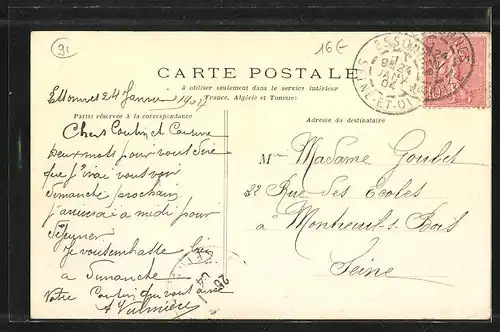 91
16€
CARTE POSTALE
à utiliser seulement dans le service intérieur
(France, Algérie et Tunisie)
Essonnes 24 Janvier 1904
Partie réservée à la correspondance
Adresse du destinataire
Chers Cousin et Cousine
deux mots pour vous dire
que j'irai vous voir
dimanche prochain
j'arriverai a midi pour
déjeuner
Je vous embrasse bien
a Dimanche
Votre Cousin qui vous aime
A Valmière
Madame Goubet
22 Rue des Ecoles
à Montreuil s Bois
Seine
ESSONNES
24
JANV
04
SEINE-ET-OISE